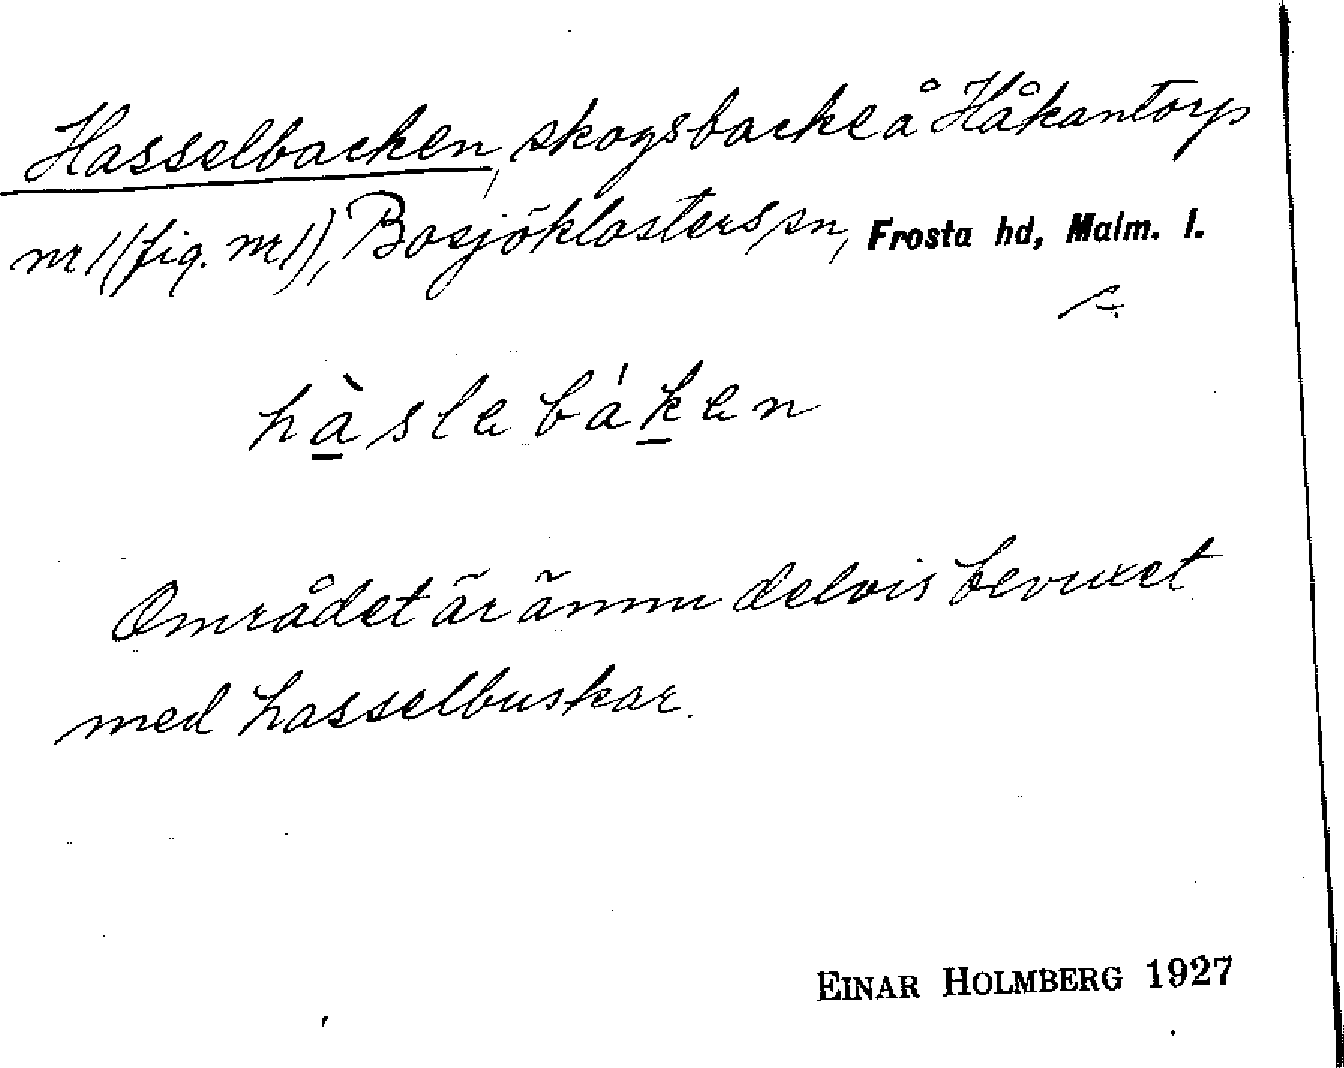 Hasselbacken, skogsbacke å Håkantorp
nr 1 (fig. nr 1), Bosjöklosters sn, Frosta hd, Malm. l.
hàslebáken
Området är ännu delvis bevuxet
med hasselbuskar.
EINAR HOLMBERG 1927